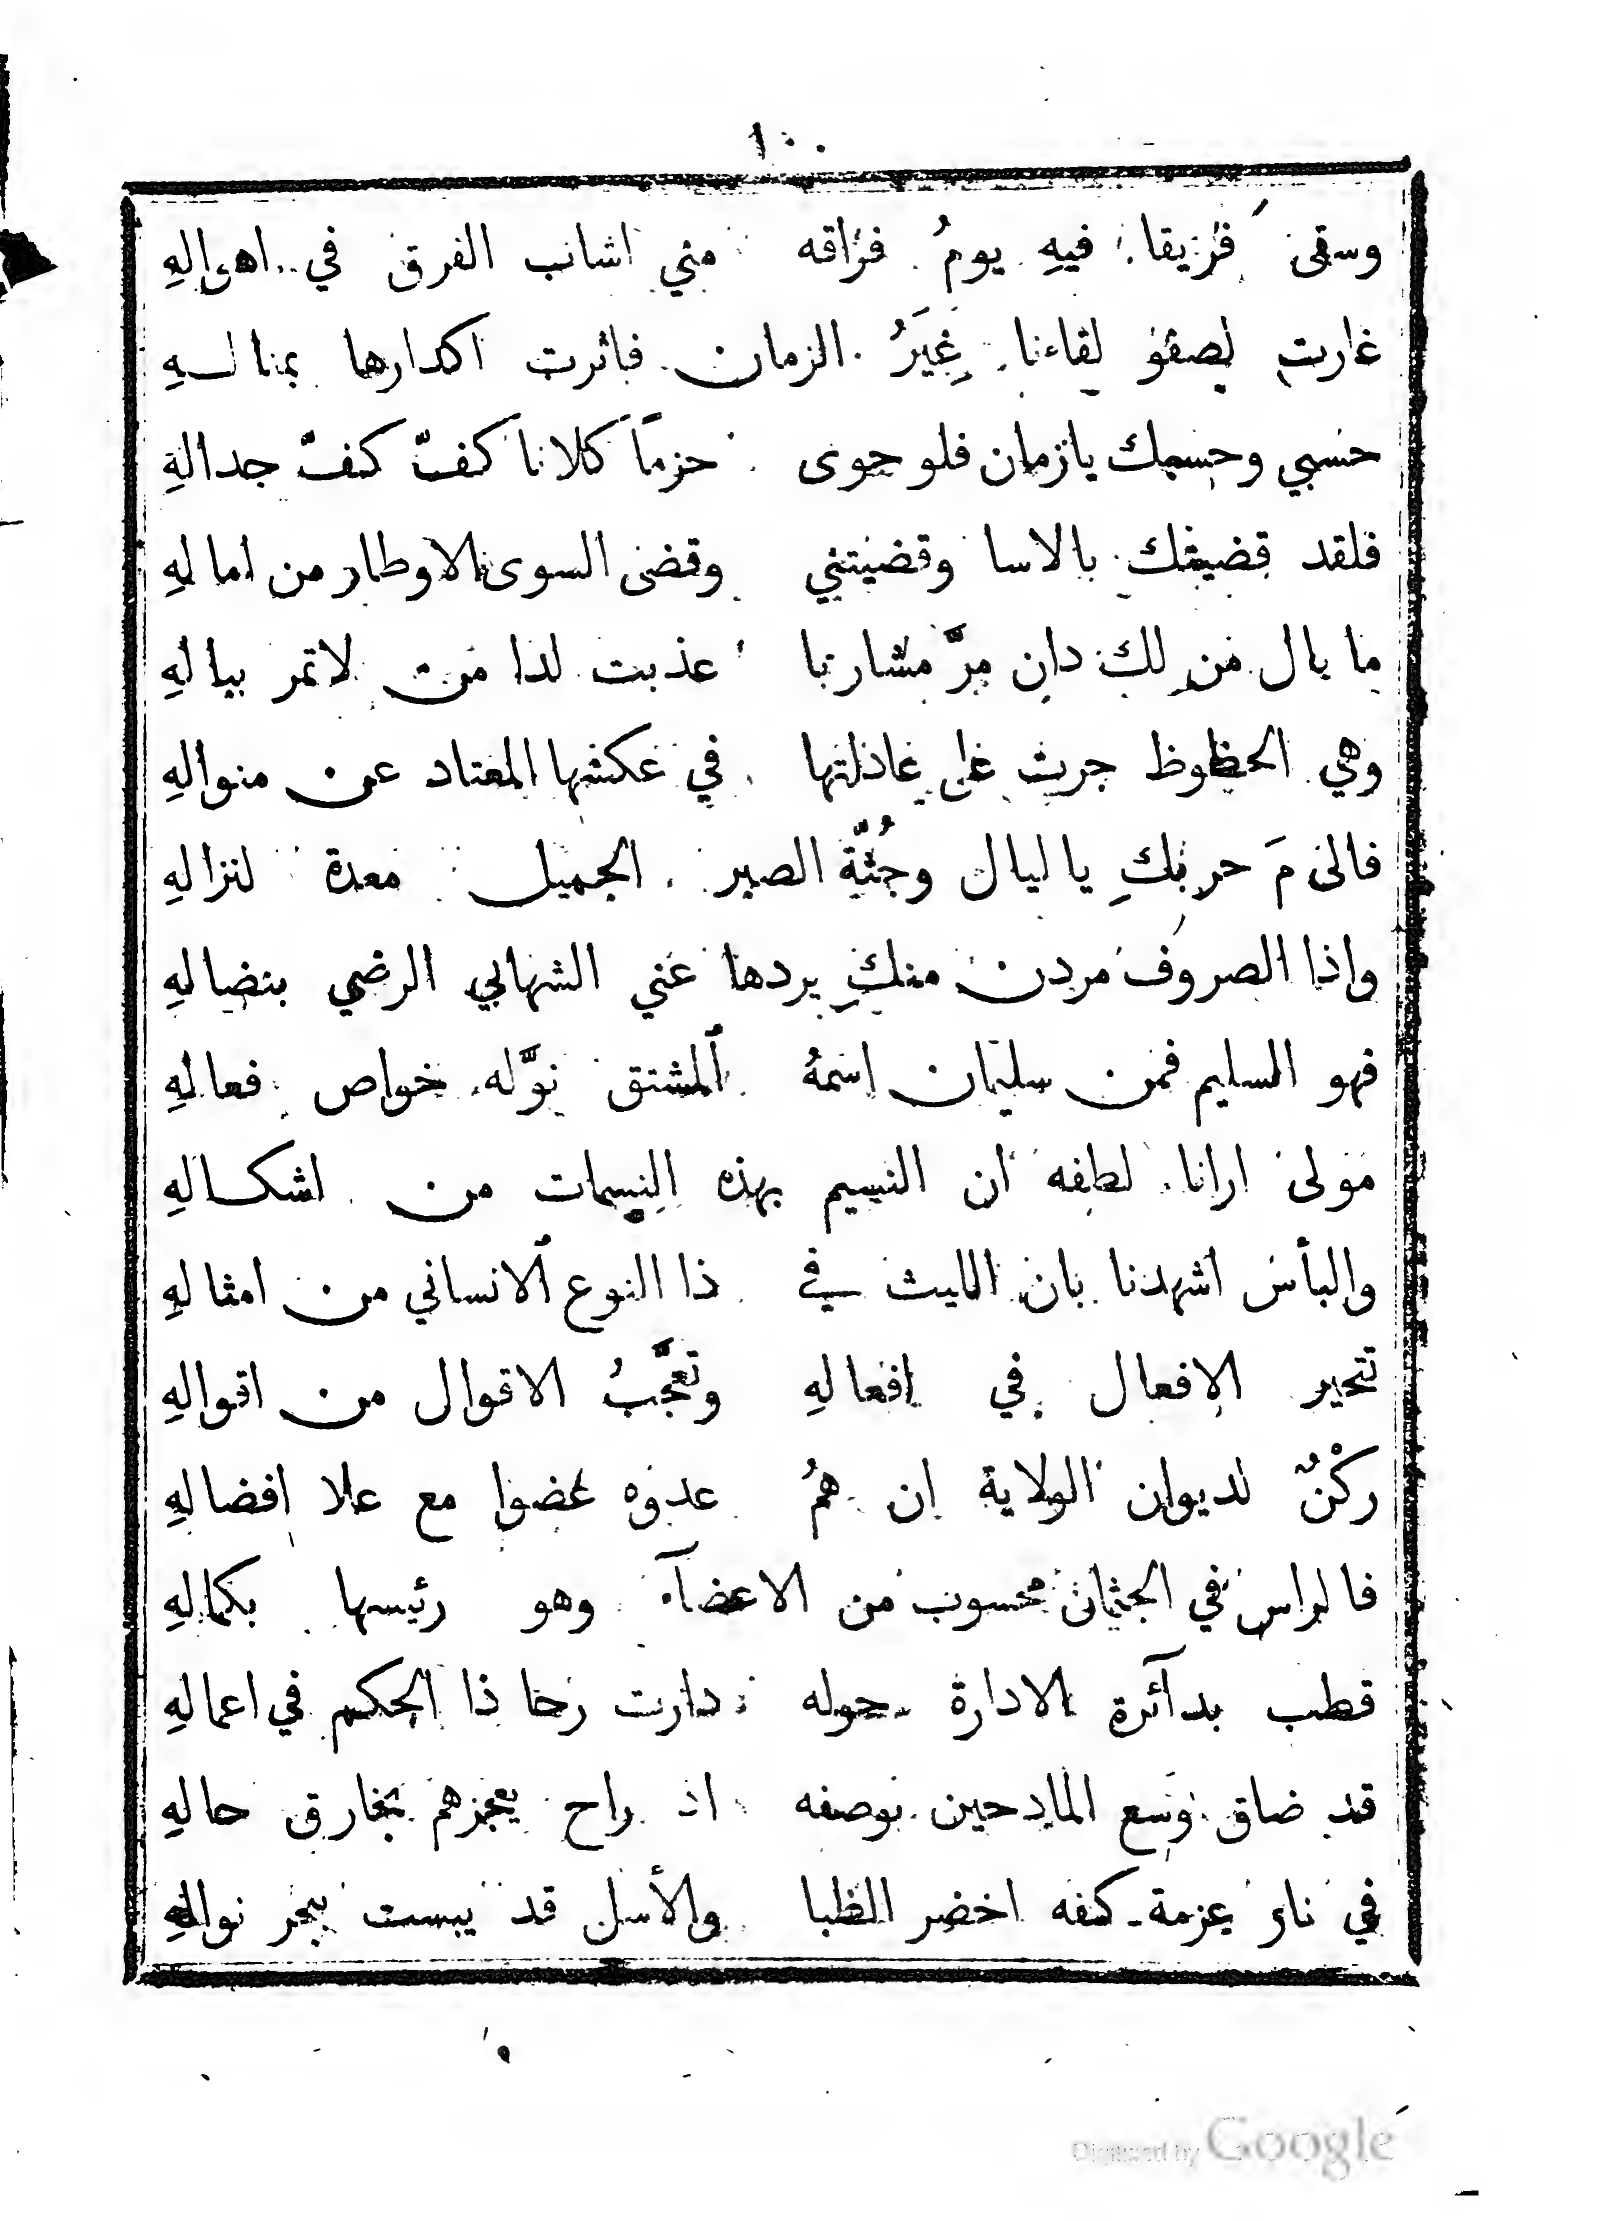 ١٠٠
وسقى فريقا فيهِ يومُ فراقه مني اشاب الفرق في اهوالهِ
غارت لصفو لقاءنا غِيَرُ الزمان فاثرت اكدارها بمنالهِ
حسبي وحسبك يازمان فلو حوى حزماً كلانا كفّ كفّ جدالهِ
فلقد قضيتك بالاسا وقضيتني وقضى السوى الاوطار من امالهِ
ما بال من لك دان مرَّ مشاربا عذبت لدا من لا تمر ببالهِ
وهي الحظوظ جرت على عاذلتها في عكسها المعتاد عن منوالهِ
فالى مَ حربكِ يا ليال وجُنَّة الصبر الجميل معدة لنزالهِ
واذا الصروف مردن منكِ يردها عني الشهابي الرضي بنضالهِ
فهو السليم فمن سليمان اسمهُ المشتق نوَّله خواص فعالهِ
مولى ارانا لطفه ان النسيم بهذه النسمات من اشكالهِ
والبأس اشهدنا بان الليث في ذا النوع الانساني من امثالهِ
تتحير الافعال في افعالهِ وتعجَّبُ الاقوال من اقوالهِ
ركْنٌ لديوان الولاية ان همُ عدوه عضوا مع علا افضالهِ
فالراس في الجثمان محسوب من الاعضآء وهو رئيسها بكمالهِ
قطب بدآئرة الادارة حوله دارت رحا ذا الحكم في اعمالهِ
قد ضاق وسع المادحين بوصفه اذ راح يعجزهم بخارق حالهِ
في نار عزمة كفه اخضر الظبا والأسل قد يبست ببحر نوالهِ
Digitized by Google